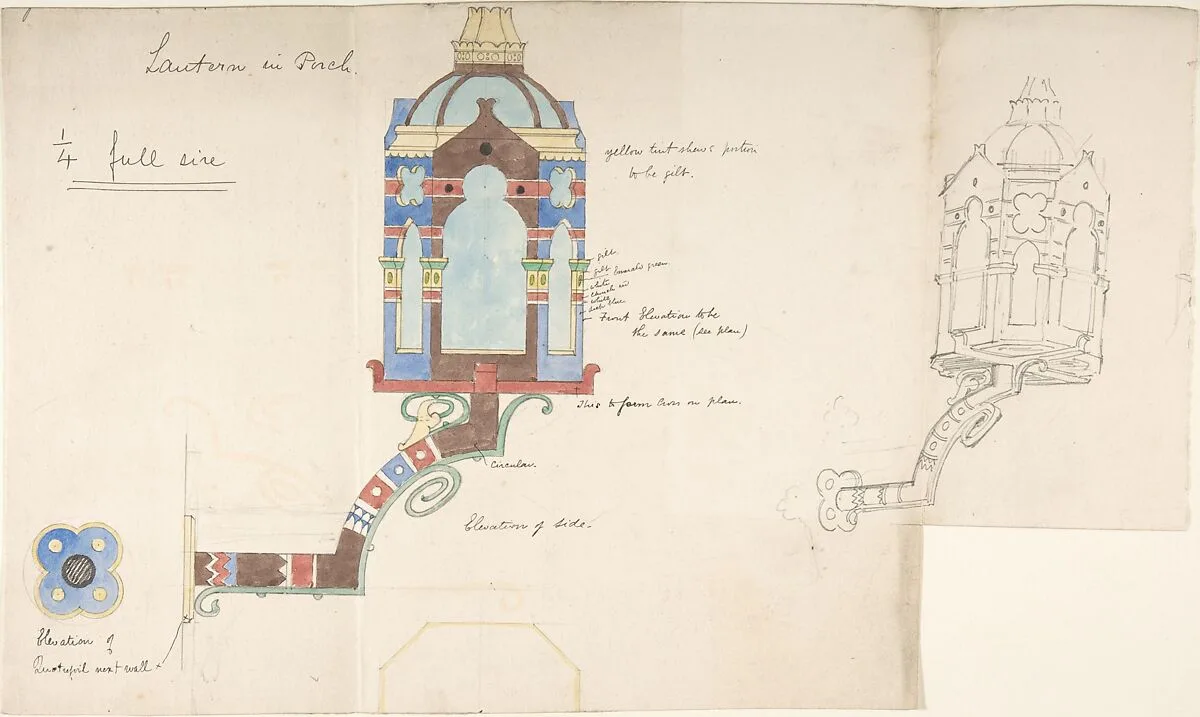 Lantern in Porch.
1/4 full size
yellow tint shews portion
to be gilt.
gilt.
gilt Emerald green.
white
white
dark blue
Front Elevation to be
the same (see plan)
This to form Cross on plan.
Circular.
Elevation of side.
Elevation of
Quatrefoil next wall x